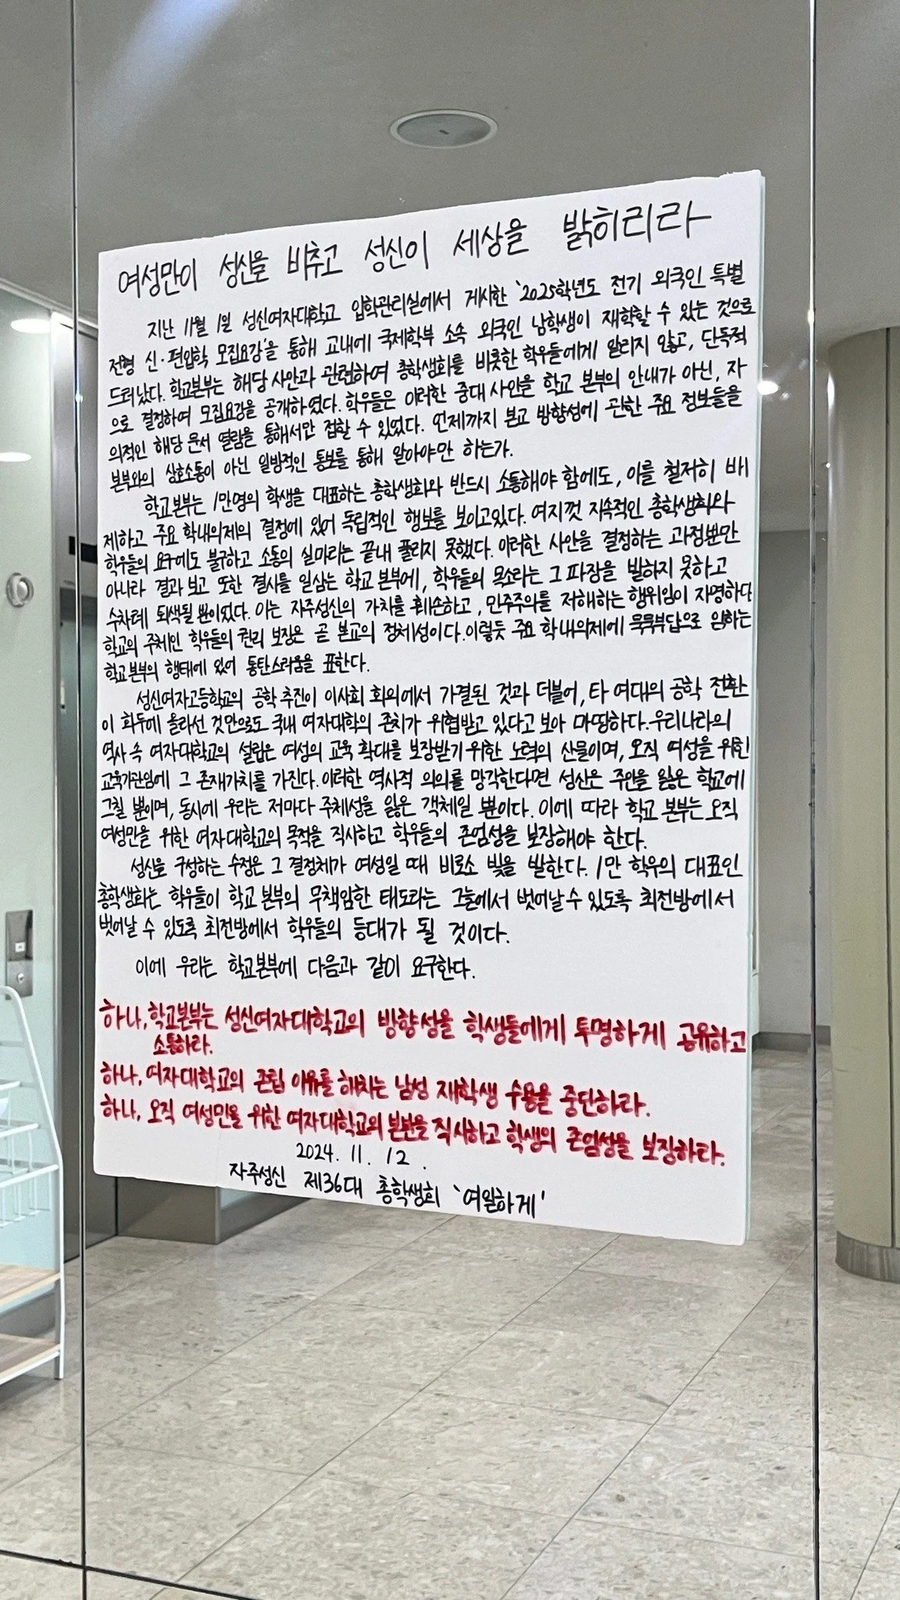 여성만이 성신을 비추고 성신이 세상을 밝히리라
지난 11월 1일 성신여자대학교 입학관리실에서 게시한 '2025학년도 전기 외국인 특별
전형 신·편입학 모집요강'을 통해 교내에 국제학부 소속 외국인 남학생이 재학할 수 있는 것으로
드러났다. 학교본부는 해당 사안과 관련하여 총학생회를 비롯한 학우들에게 알리지 않고, 단독적
으로 결정하여 모집요강을 공개하였다. 학우들은 이러한 중대 사안을 학교 본부의 안내가 아닌, 자
의적인 해당 문서 열람을 통해서만 접할 수 있었다. 언제까지 본교 방향성에 관한 주요 정보들을
본부와의 상호소통이 아닌 일방적인 통보를 통해 알아야만 하는가.
학교본부는 1만명의 학생을 대표하는 총학생회와 반드시 소통해야 함에도, 이를 철저히 배
제하고 주요 학내의제의 결정에 있어 독립적인 행보를 보이고있다. 여지껏 지속적인 총학생회와
학우들의 요구에도 불구하고 소통의 실마리는 끝내 풀리지 못했다. 이러한 사안을 결정하는 과정뿐만
아니라 결과 보고 또한 결시를 일삼는 학교 본부에, 학우들의 목소리는 그 파장을 발하지 못하고
수차례 퇴색될 뿐이었다. 이는 자주성신의 가치를 훼손하고, 민주주의를 저해하는 행위임이 자명하다
학교의 주체인 학우들의 권리 보장은 곧 본교의 정체성이다. 이렇듯 주요 학내의제에 묵묵부답으로 임하는
학교본부의 행태에 있어 통탄스러움을 표한다.
성신여자고등학교의 공학 추진이 이사회 회의에서 가결된 것과 더불어, 타 여대의 공학 전환
이 화두에 올라선 것만으로도 국내 여자대학의 존치가 위협받고 있다고 보아 마땅하다. 우리나라의
역사 속 여자대학교의 설립은 여성의 교육 확대를 보장받기 위한 노력의 산물이며, 오직 여성을 위한
교육기관임에 그 존재가치를 가진다. 이러한 역사적 의의를 망각한다면 성신은 주관을 잃은 학교에
그칠 뿐이며, 동시에 우리는 저마다 주체성을 잃은 객체일 뿐이다. 이에 따라 학교 본부는 오직
여성만을 위한 여자대학교의 목적을 직시하고 학우들의 존엄성을 보장해야 한다.
성신을 구성하는 수정은 그 결정체가 여성일 때 비로소 빛을 발한다. 1만 학우의 대표인
총학생회는 학우들이 학교 본부의 무책임한 태도라는 그늘에서 벗어날 수 있도록 최전방에서
벗어날 수 있도록 최전방에서 학우들의 등대가 될 것이다.
이에 우리는 학교본부에 다음과 같이 요구한다.
하나, 학교본부는 성신여자대학교의 방향성을 학생들에게 투명하게 공유하고
소통하라.
하나, 여자대학교의 존립 이유를 해치는 남성 재학생 수용을 중단하라.
하나, 오직 여성만을 위한 여자대학교의 본분을 직시하고 학생의 존엄성을 보장하라.
2024. 11. 12.
자주성신 제36대 총학생회 '여원하게'